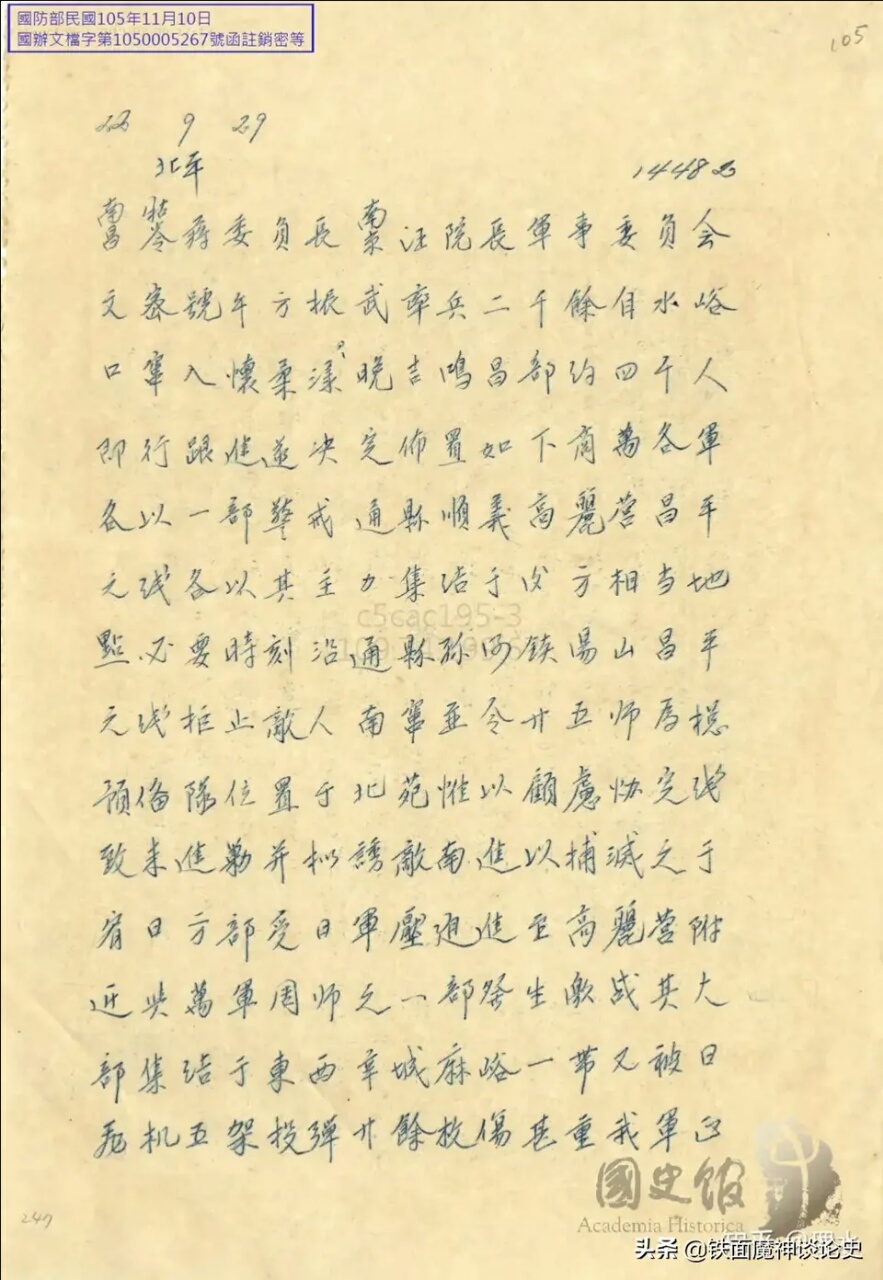 國防部民國105年11月10日
國辦文檔字第1050005267號函註銷密等
105
22 9 29
北平
14482
南昌牯岭蔣委員長南京汪院長軍事委員会
文密號午方振武率兵二千餘自水峪
口竄入懷柔漾晚吉鴻昌部约四千人
即行跟進遂决定佈置如下商萬各軍
各以一部警戒通縣順義高麗营昌平
之线各以其主力集结于後方相当地
點必要時刻沿通縣孫河鎮湯山昌平
之线拒止敵人南竄並令廿五师為総
預备隊位置于北苑惟以顧慮协定线
致未進勦并拟誘敵南進以捕滅之于
宥日方部受日軍壓迫進至高麗营附
近与萬軍周师之一部發生激战其大
部集结于東西辛城麻峪一带又被日
飛机五架投弹廿餘枚傷甚重我軍正
c5cac195-3
247
國史館
Academia Historica
头条 @铁面魔神谈论史